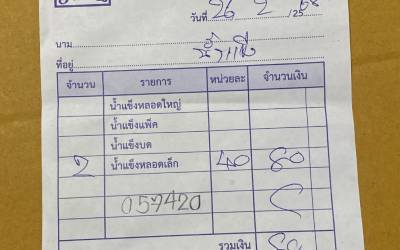 วันที่ 26 2 /25 68
นาม น้ำแข็ง
ที่อยู่
จำนวน รายการ หน่วยละ จำนวนเงิน
น้ำแข็งหลอดใหญ่
น้ำแข็งแพ็ค
น้ำแข็งบด
2 น้ำแข็งหลอดเล็ก 40 80
057420
รวมเงิน 80